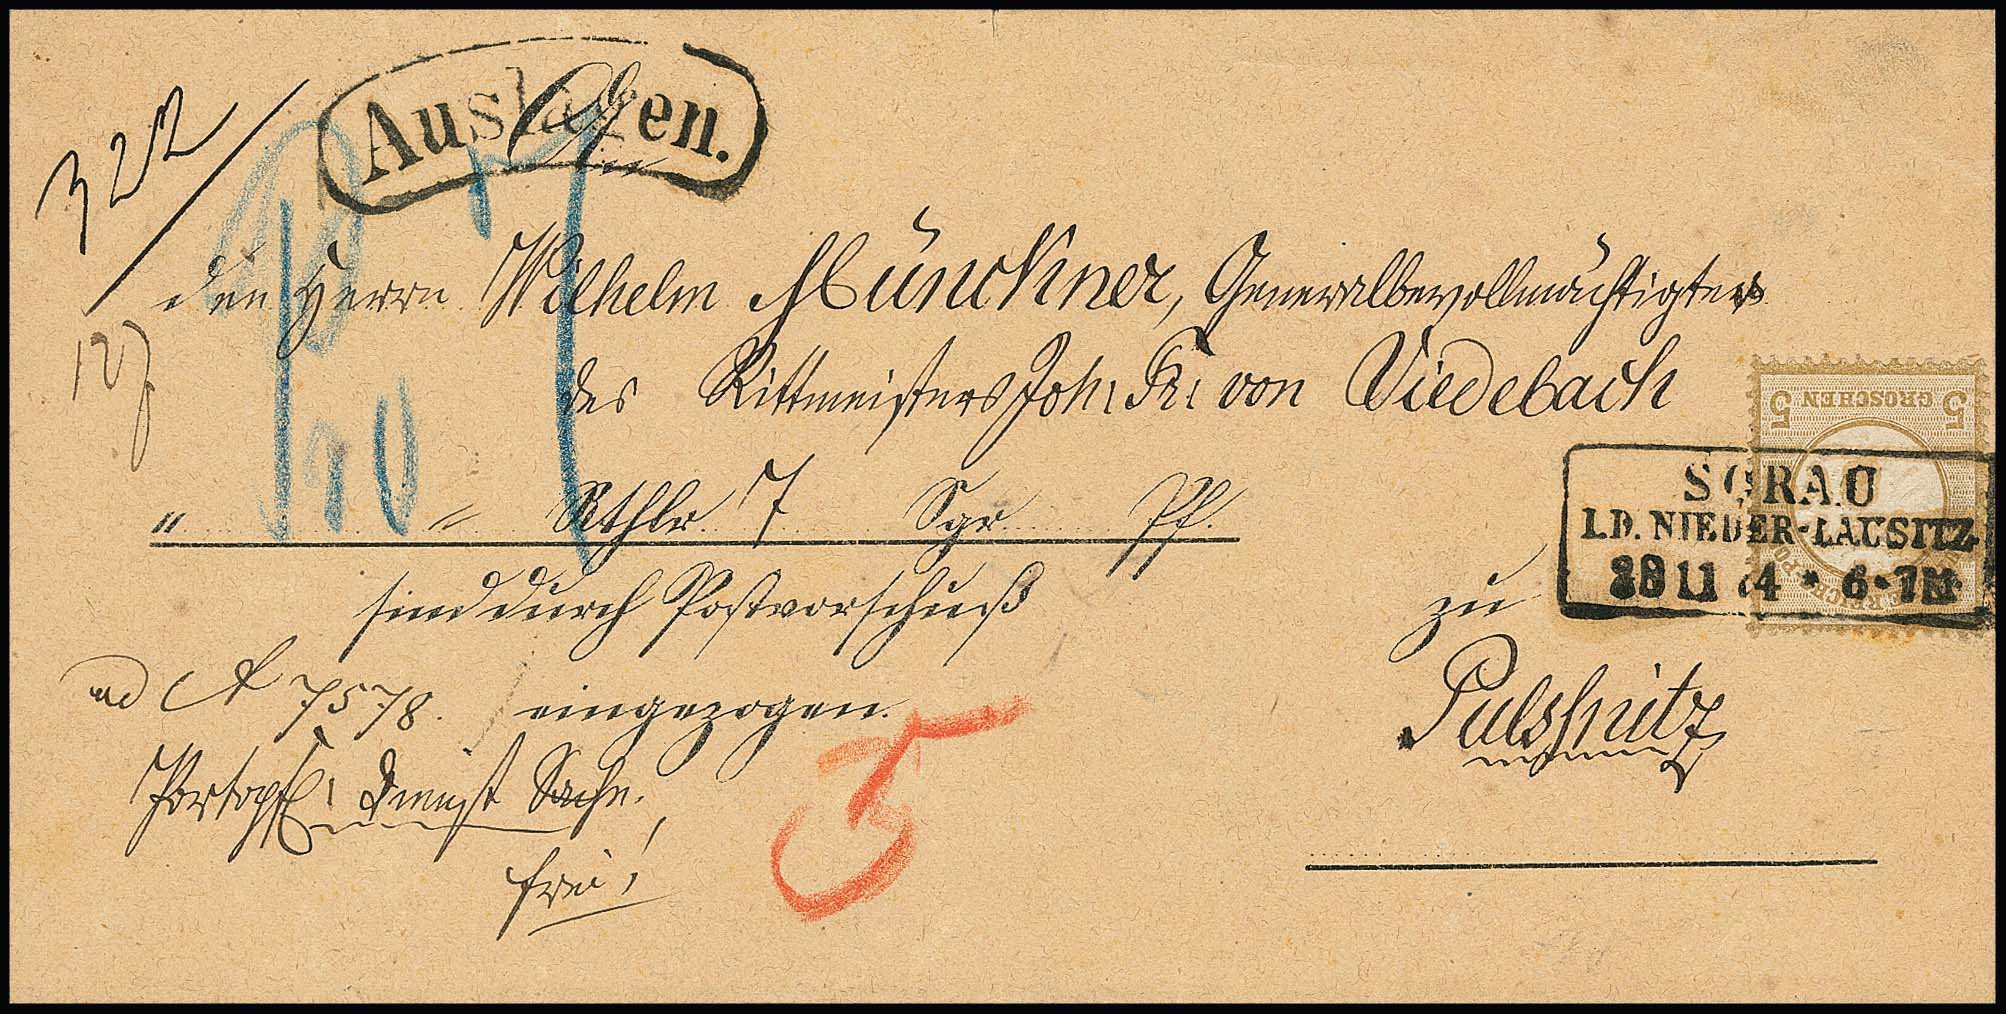 322
Auslagen.
An
den Herrn Wilhelm Münckner, Generalbevollmächtigter
127
des Rittmeisters Joh. Fr. von Viedebach
5 GROSCHEN 5
SORAU
I.D. NIEDER-LAUSITZ
28 11 74 * 6-7N
" " Rthlr 7 Sgr Pf.
sind durch Postvorschuß
zu
ad A 7578. eingezogen.
Pulsnitz
Portopfl. Dienst Sache.
5
frei!